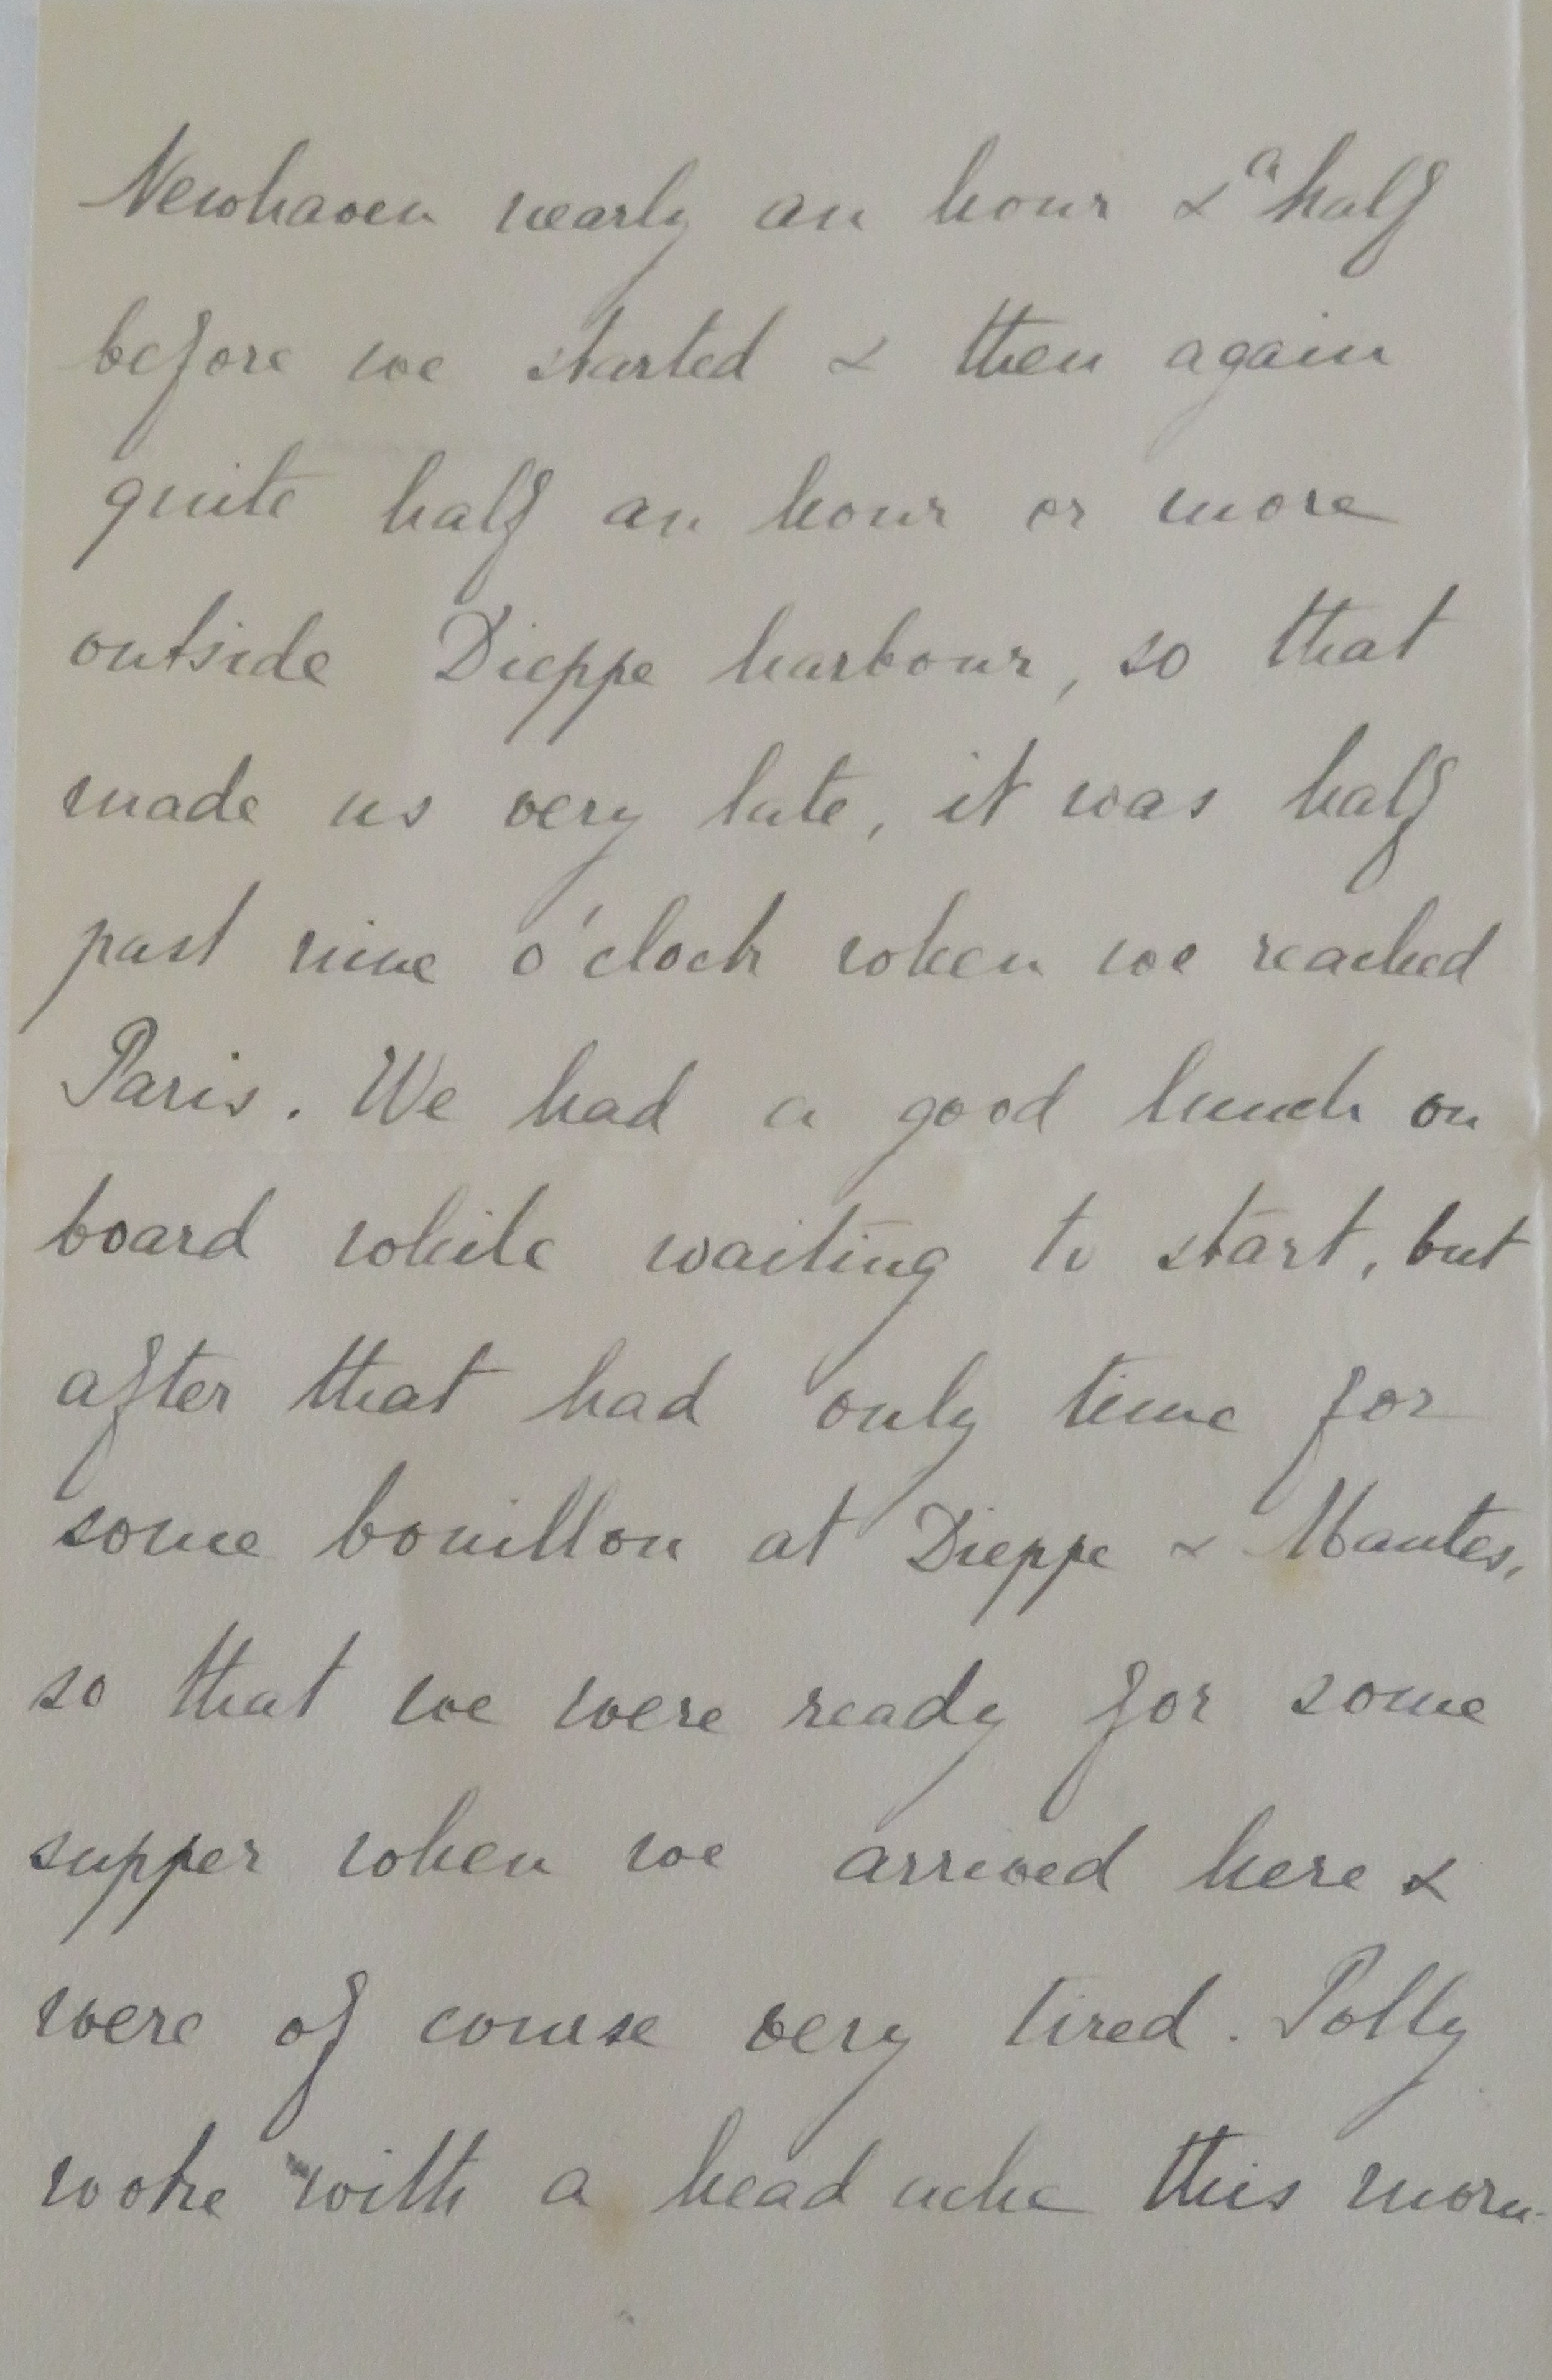 Newhaven nearly an hour & a half
before we started & then again
quite half an hour or more
outside Dieppe harbour, so that
made us very late, it was half
past nine o'clock when we reached
Paris. We had a good lunch on
board while waiting to start, but
after that had only time for
some bouillon at Dieppe & Mantes,
so that we were ready for some
supper when we arrived here &
were of course very tired. Polly
woke with a head ache this morn-